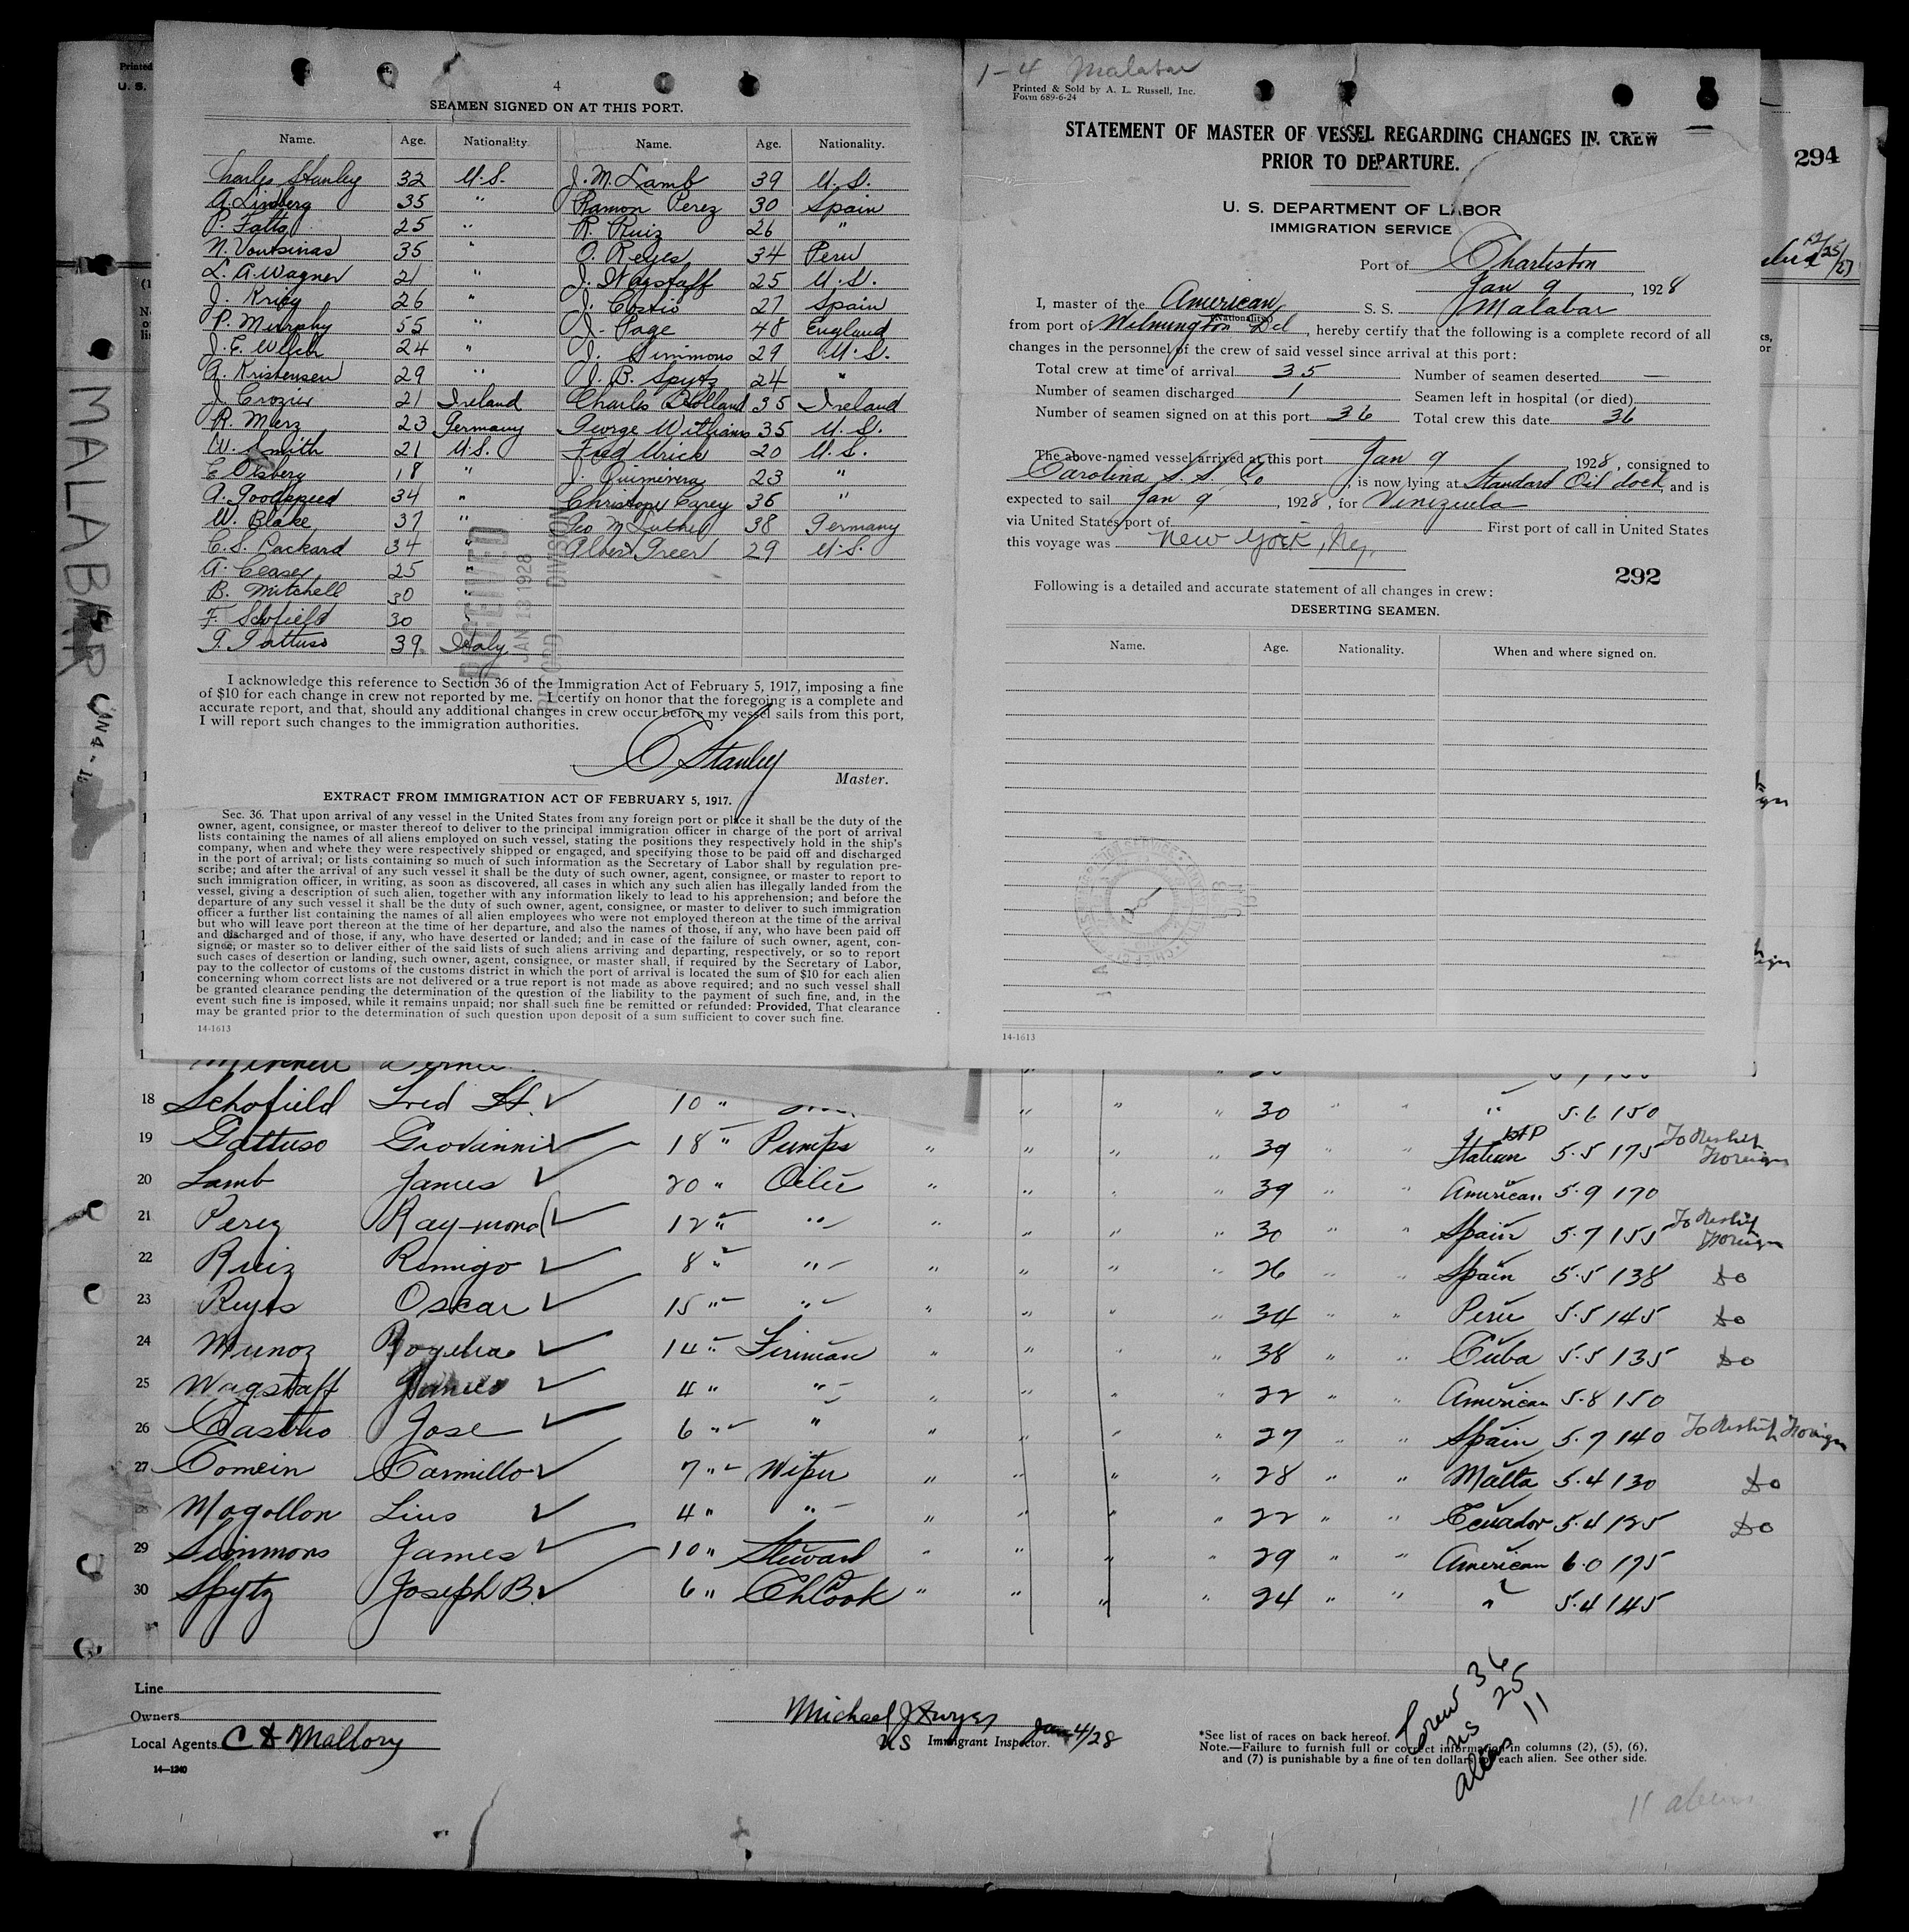 Printed
U. S.
4
SEAMEN SIGNED ON AT THIS PORT.
Name. Age. Nationality. Name. Age. Nationality.
Charles Stanley 32 U.S. J. M. Lamb 39 U.S.
A. Lindberg 35 " Ramon Perez 30 Spain
P. Fatta 25 " R. Ruiz 26 "
N. Voutsinas 35 " O. Reyes 34 Peru
L. A. Wagner 21 " J. Wagstaff 25 U.S.
J. Krieg 26 " J. Costio 27 Spain
P. Murphy 55 " J. Page 48 England
J. E. Welch 24 " J. Simmons 29 U.S.
A. Kristensen 29 " J. B. Spytz 24 "
J. Crozier 21 Ireland Charles Holland 35 Ireland
R. Merz 23 Germany George Williams 35 U.S.
W. Smith 21 U.S. Fred Urick 20 U.S.
E. Olsberg 18 " J. Quimivera 23 "
A. Goodspeed 34 " Christoper Carey 36 "
W. Blake 37 " Geo M Luther 38 Germany
C. S. Packard 34 " Albert Greer 29 U.S.
A. Ceaser 25 "
B. Mitchell 30 "
F. Schofield 30 "
G. Gattuso 39 Italy
RECEIVED
JAN 13 1928
RECORD DIVISION
I acknowledge this reference to Section 36 of the Immigration Act of February 5, 1917, imposing a fine
of $10 for each change in crew not reported by me. I certify on honor that the foregoing is a complete and
accurate report, and that, should any additional changes in crew occur before my vessel sails from this port,
I will report such changes to the immigration authorities.
C Stanley
Master.
EXTRACT FROM IMMIGRATION ACT OF FEBRUARY 5, 1917.
Sec. 36. That upon arrival of any vessel in the United States from any foreign port or place it shall be the duty of the
owner, agent, consignee, or master thereof to deliver to the principal immigration officer in charge of the port of arrival
lists containing the names of all aliens employed on such vessel, stating the positions they respectively hold in the ship's
company, when and where they were respectively shipped or engaged, and specifying those to be paid off and discharged
in the port of arrival; or lists containing so much of such information as the Secretary of Labor shall by regulation pre-
scribe; and after the arrival of any such vessel it shall be the duty of such owner, agent, consignee, or master to report to
such immigration officer, in writing, as soon as discovered, all cases in which any such alien has illegally landed from the
vessel, giving a description of such alien, together with any information likely to lead to his apprehension; and before the
departure of any such vessel it shall be the duty of such owner, agent, consignee, or master to deliver to such immigration
officer a further list containing the names of all alien employees who were not employed thereon at the time of the arrival
but who will leave port thereon at the time of her departure, and also the names of those, if any, who have been paid off
and discharged and of those, if any, who have deserted or landed; and in case of the failure of such owner, agent, con-
signee, or master so to deliver either of the said lists of such aliens arriving and departing, respectively, or so to report
such cases of desertion or landing, such owner, agent, consignee, or master shall, if required by the Secretary of Labor,
pay to the collector of customs of the customs district in which the port of arrival is located the sum of $10 for each alien
concerning whom correct lists are not delivered or a true report is not made as above required; and no such vessel shall
be granted clearance pending the determination of the question of the liability to the payment of such fine, and, in the
event such fine is imposed, while it remains unpaid; nor shall such fine be remitted or refunded: Provided, That clearance
may be granted prior to the determination of such question upon deposit of a sum sufficient to cover such fine.
14-1613
1-4 Malabar
Printed & Sold by A. L. Russell, Inc.
Form 689-6-24
STATEMENT OF MASTER OF VESSEL REGARDING CHANGES IN CREW
PRIOR TO DEPARTURE.
U. S. DEPARTMENT OF LABOR
IMMIGRATION SERVICE
Port of Charleston
Jan 9, 1928
I, master of the American S. S. Malabar
(Nationality)
from port of Wilmington Del, hereby certify that the following is a complete record of all
changes in the personnel of the crew of said vessel since arrival at this port:
Total crew at time of arrival 35 Number of seamen deserted —
Number of seamen discharged 1 Seamen left in hospital (or died)
Number of seamen signed on at this port 36 Total crew this date 36
The above-named vessel arrived at this port Jan 9 1928, consigned to
Carolina S. S. Co, is now lying at Standard Oil dock, and is
expected to sail Jan 9, 1928, for Venezuela
via United States port of First port of call in United States
this voyage was New York, Ny.
292
Following is a detailed and accurate statement of all changes in crew:
DESERTING SEAMEN.
Name. Age. Nationality. When and where signed on.
14-1613
294
12/25/27
MALABAR
JAN 4-
18 Schofield Fred H. 10 " " " " 30 " " " 5.6 150
19 Gattuso Giovanni 18 " Pumps " " " " 39 " " Italian 5.5 175 To Reship Foreign
20 Lamb James 20 " Oiler " " " " 39 " " American 5.9 170
21 Perez Raymond 12 " " " " " " 30 " " Spain 5.7 155 To Reship Foreign
22 Ruiz Remigo 8 " " " " " " 26 " " Spain 5.5 138 do
23 Reyes Oscar 15 " " " " " " 34 " " Peru 5.5 145 do
24 Munoz Rogelia 14 " Fireman " " " " 38 " " Cuba 5.5 135 do
25 Wagstaff James 4 " " " " " " 22 " " American 5.8 150
26 Castro Jose 6 " " " " " " 27 " " Spain 5.7 140 To Reship Foreign
27 Comein Carmillo 7 " Wiper " " " " 28 " " Malta 5.4 130 do
28 Mogollon Lius 4 " " " " " " 22 " " Ecuador 5.4 125 do
29 Simmons James 10 " Steward " " " " 29 " " American 6.0 175
30 Spytz Joseph B. 6 " Ch Cook " " " " 24 " " " 5.4 145
Line
Owners
Local Agents C D Mallory
14—1240
Michael J Dwyer
US Immigrant Inspector. Jan 4/28
*See list of races on back hereof.
Note.—Failure to furnish full or correct information in columns (2), (5), (6),
and (7) is punishable by a fine of ten dollars for each alien. See other side.
Crew 36
US 25
aliens 11
11 aliens